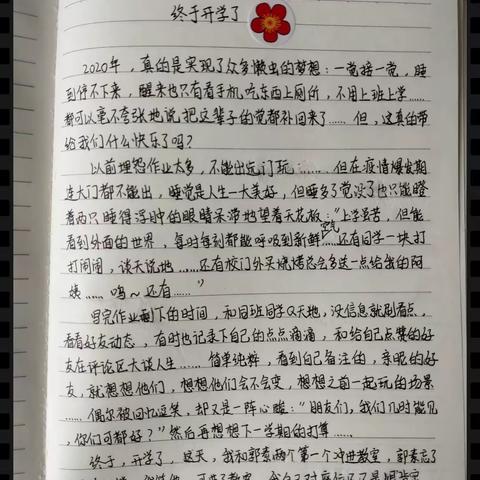 终于开学了
2020年，真的是实现了众多懒虫的梦想：一觉接一觉，睡
到停不下来，醒来也只有看手机、吃东西上厕所，不用上班上学……
都可以毫不夸张地说把这辈子的觉都补回来了……但，这真的带
给我们什么快乐了吗？
以前埋怨作业太多，不能出远门玩……但在疫情爆发期
连大门都不能出，睡觉是人生一大美好，但睡多了觉没了也只能瞪
着两只睡得浮肿的眼睛呆滞地望着天花板："上学虽苦，但能
看到外面的世界，每时每刻都能呼吸到新鲜空气……还有同学一块打
打闹闹，谈天说地……还有校门外买烧烤总会多送一点给我的阿
姨……呜~还有……"
写完作业剩下的时间，和同班同学Q天地，没信息就刷看点，
看看好友动态，有时也记录下自己的点点滴滴，和给自己点赞的好
友在评论区大谈人生……简单纯粹，看到自己备注的，亲昵的好
友，就想想他们，想想他们会不会变，想想之前一起玩的场景
……偶尔被回忆逗笑，却又是一阵心酸："朋友们，我们几时能见
，你们可都好？"然后再想想下一学期的打算……
终于，开学了，这天，我和郭素两个第一个冲进教室，郭素忘了